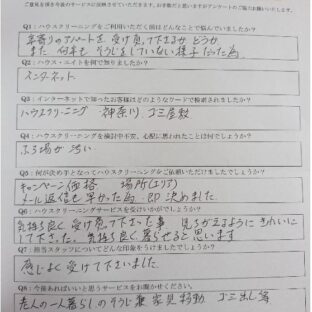 ご意見を頂き今後のサービスに反映させていただきます。お手数だと思いますがアンケートのご協力お願いいたします。
Q1：ハウスクリーニングをご利用いただく前はどんなことで悩んでいましたか？
年寄りのアパートを受け負って下さるか どうか
また 何年も そうじをしていない様子だった為
Q2：ハウス・エイトを何で知りましたか？
インターネット
Q3：インターネットで知ったお客様はどのようなワードで検索されましたか？
ハウスクリーニング 神奈川 ゴミ屋敷
Q4：ハウスクリーニングを検討中不安、心配に思われたことは何でしょうか？
ふろ場が汚い
Q5：何が決め手となってハウスクリーニングをご依頼いただけましたでしょうか？
キャンペーン価格 場所(エリア)
メール返信も早かった為、即 決めました
Q6：ハウスクリーニングサービスを受けいかがでしょうか？
気持良く 受け負って下さった事 見ちがえるように きれいに
して下さった。気持ち良く暮らせると思います
Q7：担当スタッフについてどんな印象をうけましたでしょうか？
感じよく受けて下さいました
Q8：今後あればいいと思うサービスをお聞かせください。
老人の一人暮らしのそうじ 家具移動 ゴミ出し等